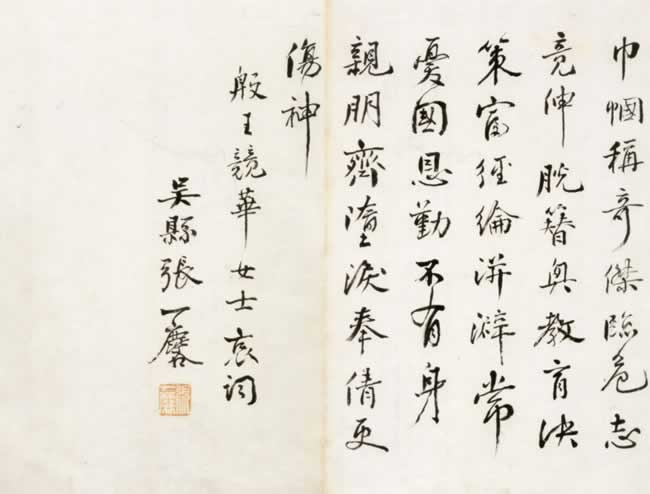 巾幗稱奇傑臨危志
竟伸脫簪興教育決
策富經綸洴澼常
憂國恩勤不有身
親朋齊墮淚奉倩更
傷神
殷王競華女士哀詞
吳縣張一麐